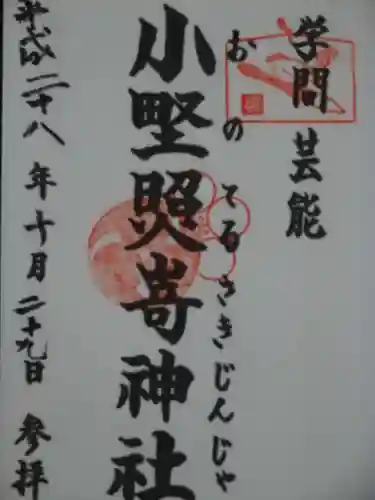 学問 芸能
おのてるさきじんじゃ
小野照嵜神社
平成二十八年十月二十九日 参拝